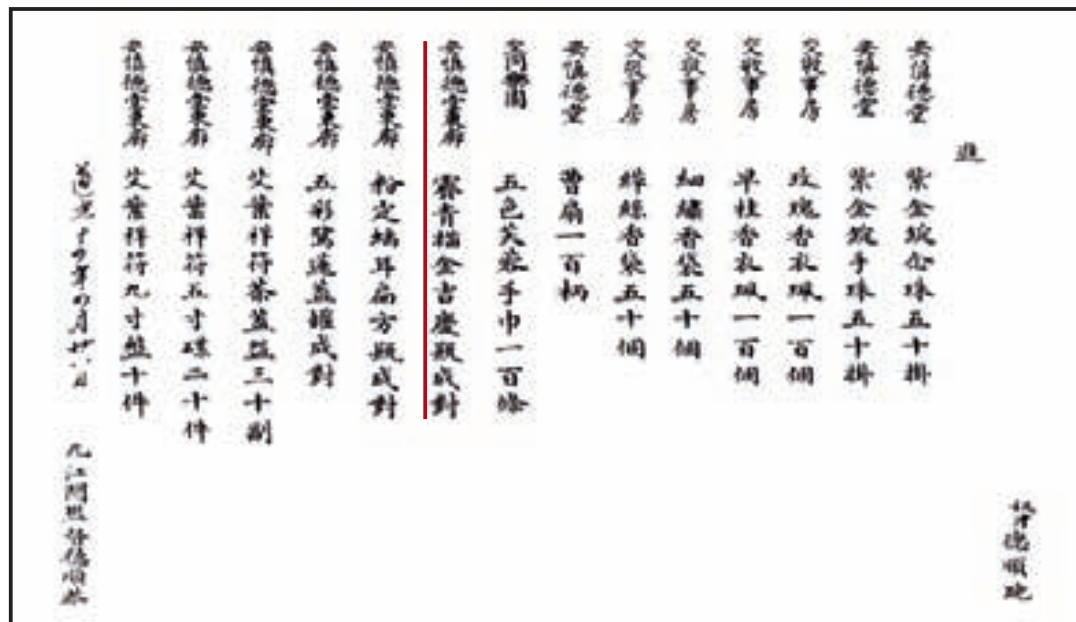 奴才德順跪
進
安慎德堂 紫金錠念珠五十掛
安慎德堂 紫金錠手珠五十掛
交敬事房 玫瑰香衣珮一百個
交敬事房 旱桂香衣珮一百個
交敬事房 細繡香袋五十個
交敬事房 緙絲香袋五十個
安慎德堂 曹扇一百柄
交同樂園 五色芙蓉手巾一百條
安慎德堂東廊 霽青描金吉慶瓶成對
安慎德堂東廊 粉定螭耳扁方瓶成對
安慎德堂東廊 五彩鷺蓮蓋罐成對
安慎德堂東廊 艾葉祥符茶蓋盌三十副
安慎德堂東廊 艾葉祥符五寸碟二十件
安慎德堂東廊 艾葉祥符九寸盤十件
道光十年四月廿日 九江關監督德順恭